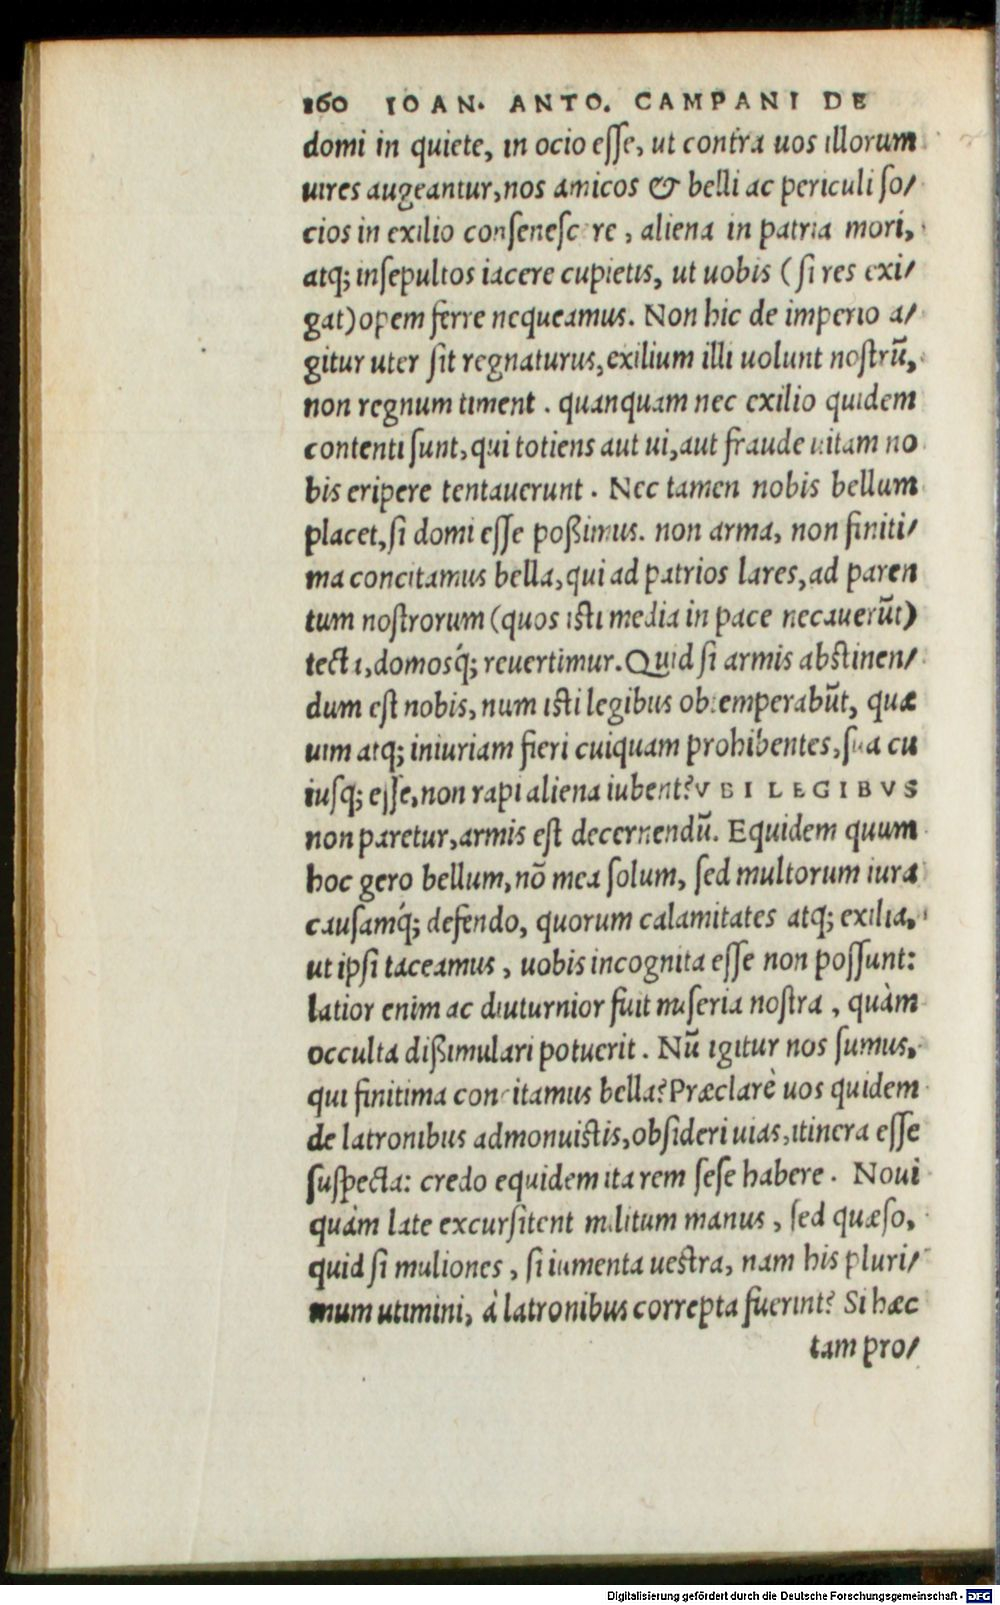 160 IOAN. ANTO. CAMPANI DE
domi in quiete, in ocio eſſe, ut contra uos illorum
uires augeantur, nos amicos & belli ac periculi ſo/
cios in exilio conſeneſcere, aliena in patria mori,
atq; inſepultos iacere cupietis, ut uobis (ſi res exi/
gat) opem ferre nequeamus. Non hic de imperio a/
gitur uter ſit regnaturus, exilium illi uolunt noſtrũ,
non regnum timent. quanquam nec exilio quidem
contenti ſunt, qui totiens aut ui, aut fraude uitam no
bis eripere tentauerunt. Nec tamen nobis bellum
placet, ſi domi eſſe poßimus. non arma, non finiti/
ma concitamus bella, qui ad patrios lares, ad paren
tum noſtrorum (quos iſti media in pace necauerũt)
tecta, domosq́; reuertimur. Quid ſi armis abſtinen/
dum eſt nobis, num iſti legibus obtemperabũt, quæ
uim atq; iniuriam fieri cuiquam prohibentes, ſua cu
iuſq; eſſe, non rapi aliena iubent? VBI LEGIBVS
non paretur, armis eſt decernendũ. Equidem quum
hoc gero bellum, nõ mea ſolum, ſed multorum iura
cauſamq́; defendo, quorum calamitates atq; exilia,
ut ipſi taceamus, uobis incognita eſſe non poſſunt:
latior enim ac diuturnior fuit miſeria noſtra, quàm
occulta dißimulari potuerit. Nũ igitur nos ſumus,
qui finitima concitamus bella? Præclarè uos quidem
de latronibus admonuiſtis, obſideri uias, itinera eſſe
ſuſpecta: credo equidem ita rem ſeſe habere. Noui
quàm late excurſitent militum manus, ſed quæſo,
quid ſi muliones, ſi iumenta ueſtra, nam his pluri/
mum utimini, à latronibus correpta fuerint? Si hæc
tam pro/
Digitalisierung gefördert durch die Deutsche Forschungsgemeinschaft - DFG